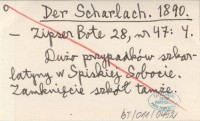 Der Scharlach. 1890.
– Zipser Bote 28, nr 47: 4.
Dużo przypadków szkar-
latyny w Spiskiej Sobocie.
Zamknięcie szkół tamże.